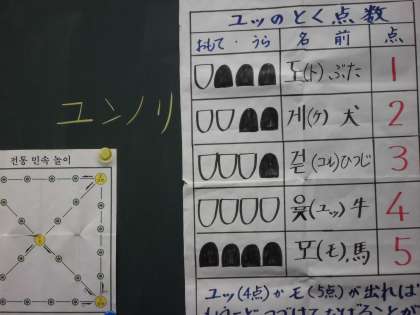 ユンノリ
전통 민속 놀이
ユッのとく点数
おもて・うら 名前 点
도(ト)ぶた 1
게(ケ)犬 2
걷(コル)ひつじ 3
윷(ユッ)牛 4
모(モ)、馬 5
ユッ(4点)かモ(5点)が出れば